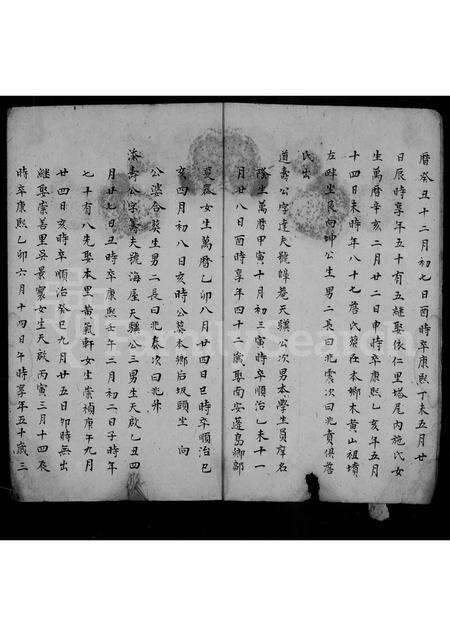 曆癸丑十二月初七日酉時卒康熙丁未五月廿
日辰時享年五十有五繼娶依仁里塔尾內施氏女
生萬曆辛亥二月廿二日申時卒康熙乙亥年五月
十四日未時年八十七居氏葬在本鄉木黃山祖墳
左畔坐艮向坤公生男二長曰兆震次曰兆賁俱居
氏出
道壽公字達夫號韓菴天驥公次男本學生員庠名
蔭生萬曆甲寅十月初三寅時卒順治乙未十一
月廿八日酉時享年四十二歲娶南安蓬島鄉郭
夏 女生萬曆乙卯八月廿四日巳時卒順治己
亥四月初八日亥時公葬本鄉后圾頭坐 向
公婆合葬生男二長曰兆泰次曰兆井
添壽公字嵩夫號海屋天驥公三男生天啟乙丑四
月廿七日丑時卒康熙壬午二月初二日子時年
七十有八先娶本里黃氣軒女生崇禎庚午九月
廿四日亥時卒順治癸巳九月廿五日卯時無出
繼娶崇善里吳景寰女生天啟丙寅三月十四辰
時卒康熙乙卯六月十四日午時享年五十歲三